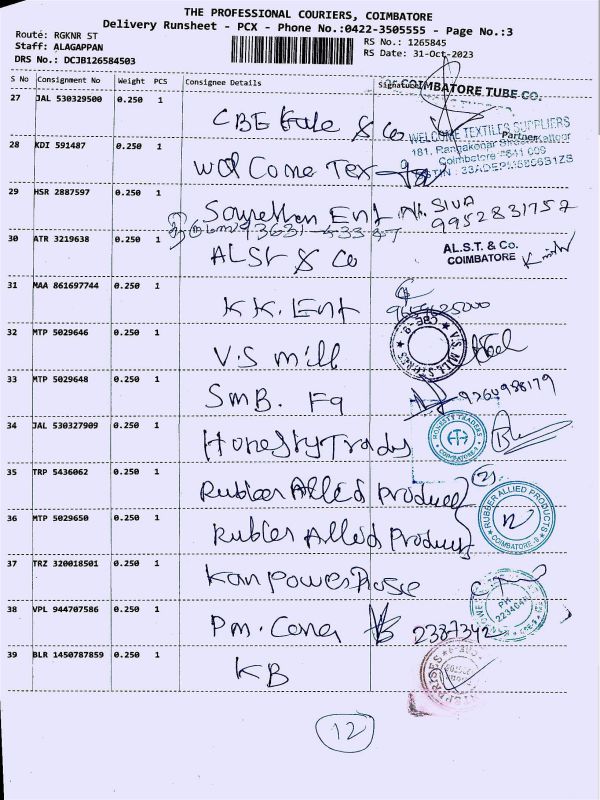 THE PROFESSIONAL COURIERS, COIMBATORE
Delivery Runsheet - PCX - Phone No.:0422-3505555 - Page No.:3
Route: RGKNR ST
Staff: ALAGAPPAN
DRS No.: DCJB126584503
RS No.: 1265845
RS Date: 31-Oct-2023
S No Consignment No Weight PCS Consignee Details Signature
COIMBATORE TUBE CO.
27 JAL 530329500 0.250 1
CBE & Co
Partner
WELCOME TEXTILES SUPPLIERS
28 KDI 591487 0.250 1
Welcome Tex
29 HSR 2887597 0.250 1
Ent
SIVA
9952831757
30 ATR 3219638 0.250 1
ALST & Co
AL.S.T. & Co.
COIMBATORE
31 MAA 861697744 0.250 1
KK. Ent
32 MTP 5029646 0.250 1
V.S mill
V.S. MILL STORES
CBE-9
33 MTP 5029648 0.250 1
SMB.
34 JAL 530327909 0.250 1
Honesty Trades
HONESTY TRADERS
COIMBATORE
35 TRP 5436062 0.250 1
Rubber Allied Produces
(2)
36 MTP 5029650 0.250 1
Rubber Allied Produces
RUBBER ALLIED PRODUCTS
COIMBATORE-9
37 TRZ 320018501 0.250 1
38 VPL 944707586 0.250 1
2387342
39 BLR 1450787859 0.250 1
KB
12